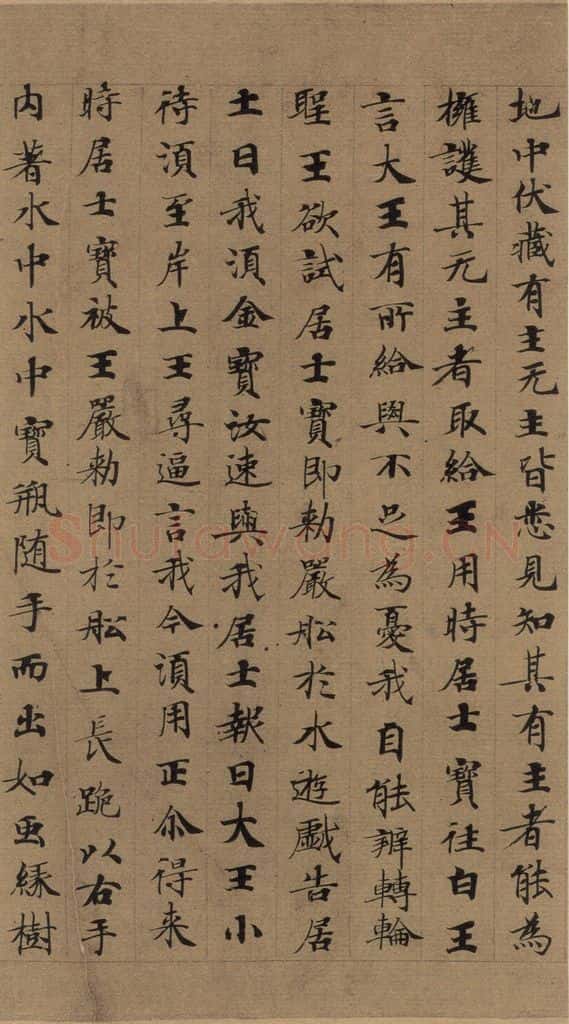 地中伏藏有主无主皆悉見知其有主者能為
擁護其无主者取給王用時居士寶往白王
言大王有所給與不足為憂我自能辦轉輪
聖王欲試居士寶即勅嚴舩於水遊戲告居
士曰我湏金寶汝速與我居士報曰大王小
待湏至岸上王尋逼言我今湏用正尒得来
時居士寶被王嚴勅即於舩上長跪以右手
内著水中水中寶瓶随手而出如虫緣樹
Shufawang.CN